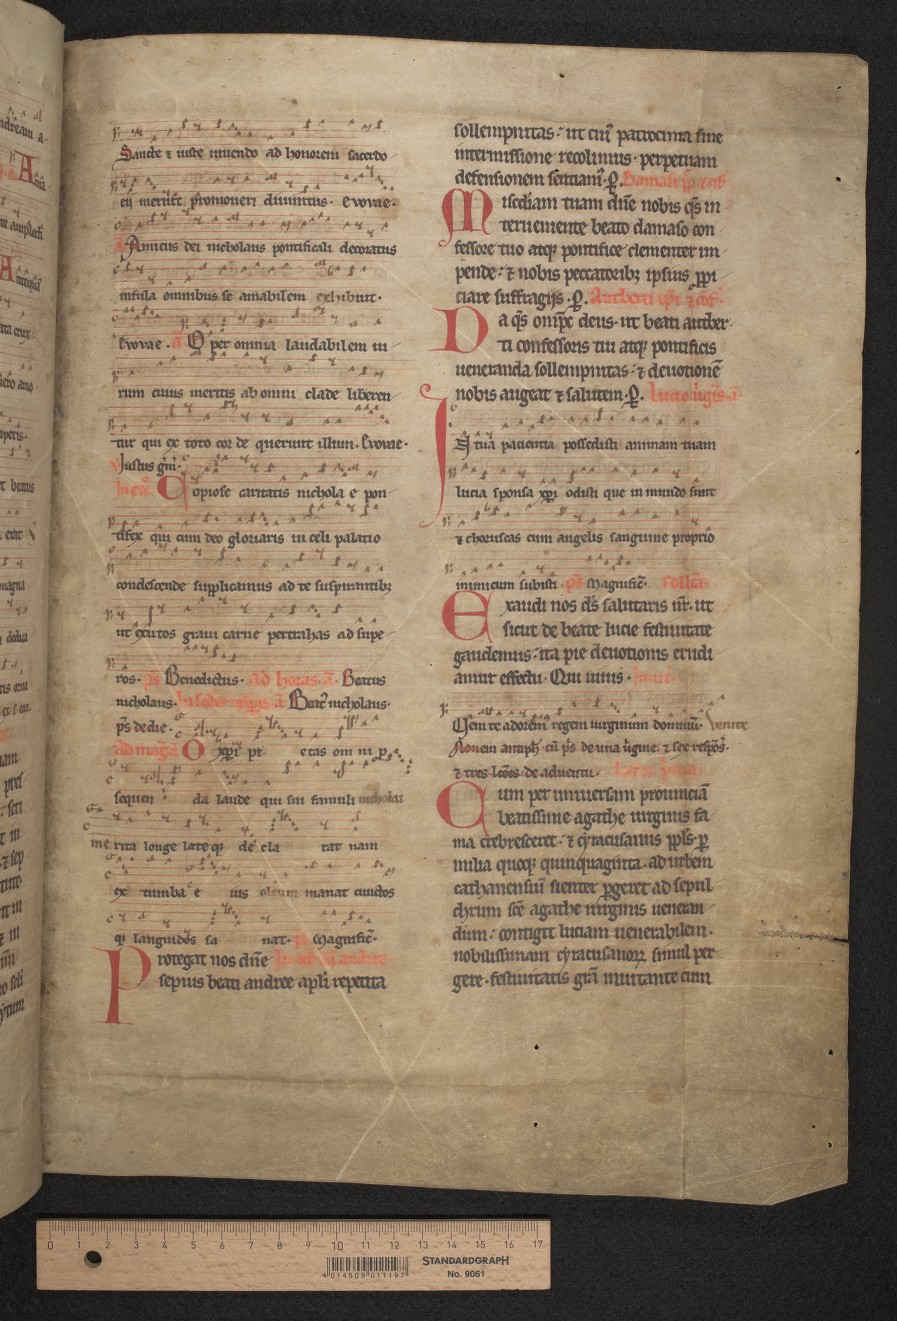 Sancte ⁊ iuste uiuendo ad honorem sacerdo
tij meruit promoueri diuinitus. Evovae.
Amicus dei nicholaus pontificali decoratus
infula omnibus se amabilem exhibuit.
Evovae. a O per omnia laudabilem ui
rum cuius meritis ab omni clade liberen
tur qui ex toto cor de querunt illum. Evovae.
Justus gĩn.
Copiose caritatis nichola e pon
tifex qui cum deo gloriaris in celi palatio
condescende supplicamus ad te suspirantibꝫ
ut exutos graui carne pertrahas ad supe
ros. pš Benedictus. ad horas. a. Beatus
nicholaus. Beatꝰ nicholaus.
pš de die.
O xp̃i pi etas om ni p
sequen da laude qui sui famuli nicholai
me rita longe late qꝫ de cla rat nam
ex tumba e ius oleum manat cunctos
qꝫ languidos sa nat. pš Magnific̃.
Protegat nos dñe
sepius beati andree apl̃i repetita
sollempnitas. ut cuiꝰ patrocinia sine
intermissione recolimus. perpetuam
defensionem sentiamꝰ. P. Damasi pp̃
Misc̃diam tuam dñe nobis qs̃ in
terueniente beato damaso con
fessore tuo atqꝫ pontifice clementer im
pende. ⁊ nobis peccatoribꝫ ipsius ꝓpi
ciare suffragijs. P. Autberti
Da qs̃ omp̃c deus. ut beati autber
ti confessoris tui atqꝫ pontificis
ueneranda sollempnitas. ⁊ deuotionẽ
nobis augeat ⁊ salutem. P. Lucie uĩgĩs a.
In tua patientia possedisti animam tuam
lucia sponsa xp̃i odisti que in mundo sunt
⁊ choruscas cum angelis sanguine proprio
inimicum uicisti. pš Magnific̃. collc̃a.
Exaudi nos ds̃ salutaris nr̃. ut
sicut de beate lucie festiuitate
gaudemus. ita pie deuotionis erudi
amur effectu. Qui uiuis.
Uenite adorem̃ regem uirginum dominũ. Venite
Nouem antiph̃. cũ pš de una ũgine. ⁊ sex respoš.
⁊ tres lc̃oes. de aduentu.
Cum per uniuersam prouinciã
beatissime agathe uirginis fa
ma crebresceret. ⁊ cyracusanis ppl̃s. ꝑ
milia quoqꝫ quinquaginta. ad urbem
cathanensiũ sienter ꝑgeret ad sepul
chrum sc̃e agathe uirginis ueneran
dum. contigit luciam uenerabilem.
nobilissimam cyracusanoꝝ simul per
gere. festiuitatis gr̃a inuitante cum
0 1 2 3 4 5 6 7 8 9 10 11 12 13 14 15 16 17
4 014509 011197
STANDARDGRAPH
No. 9061